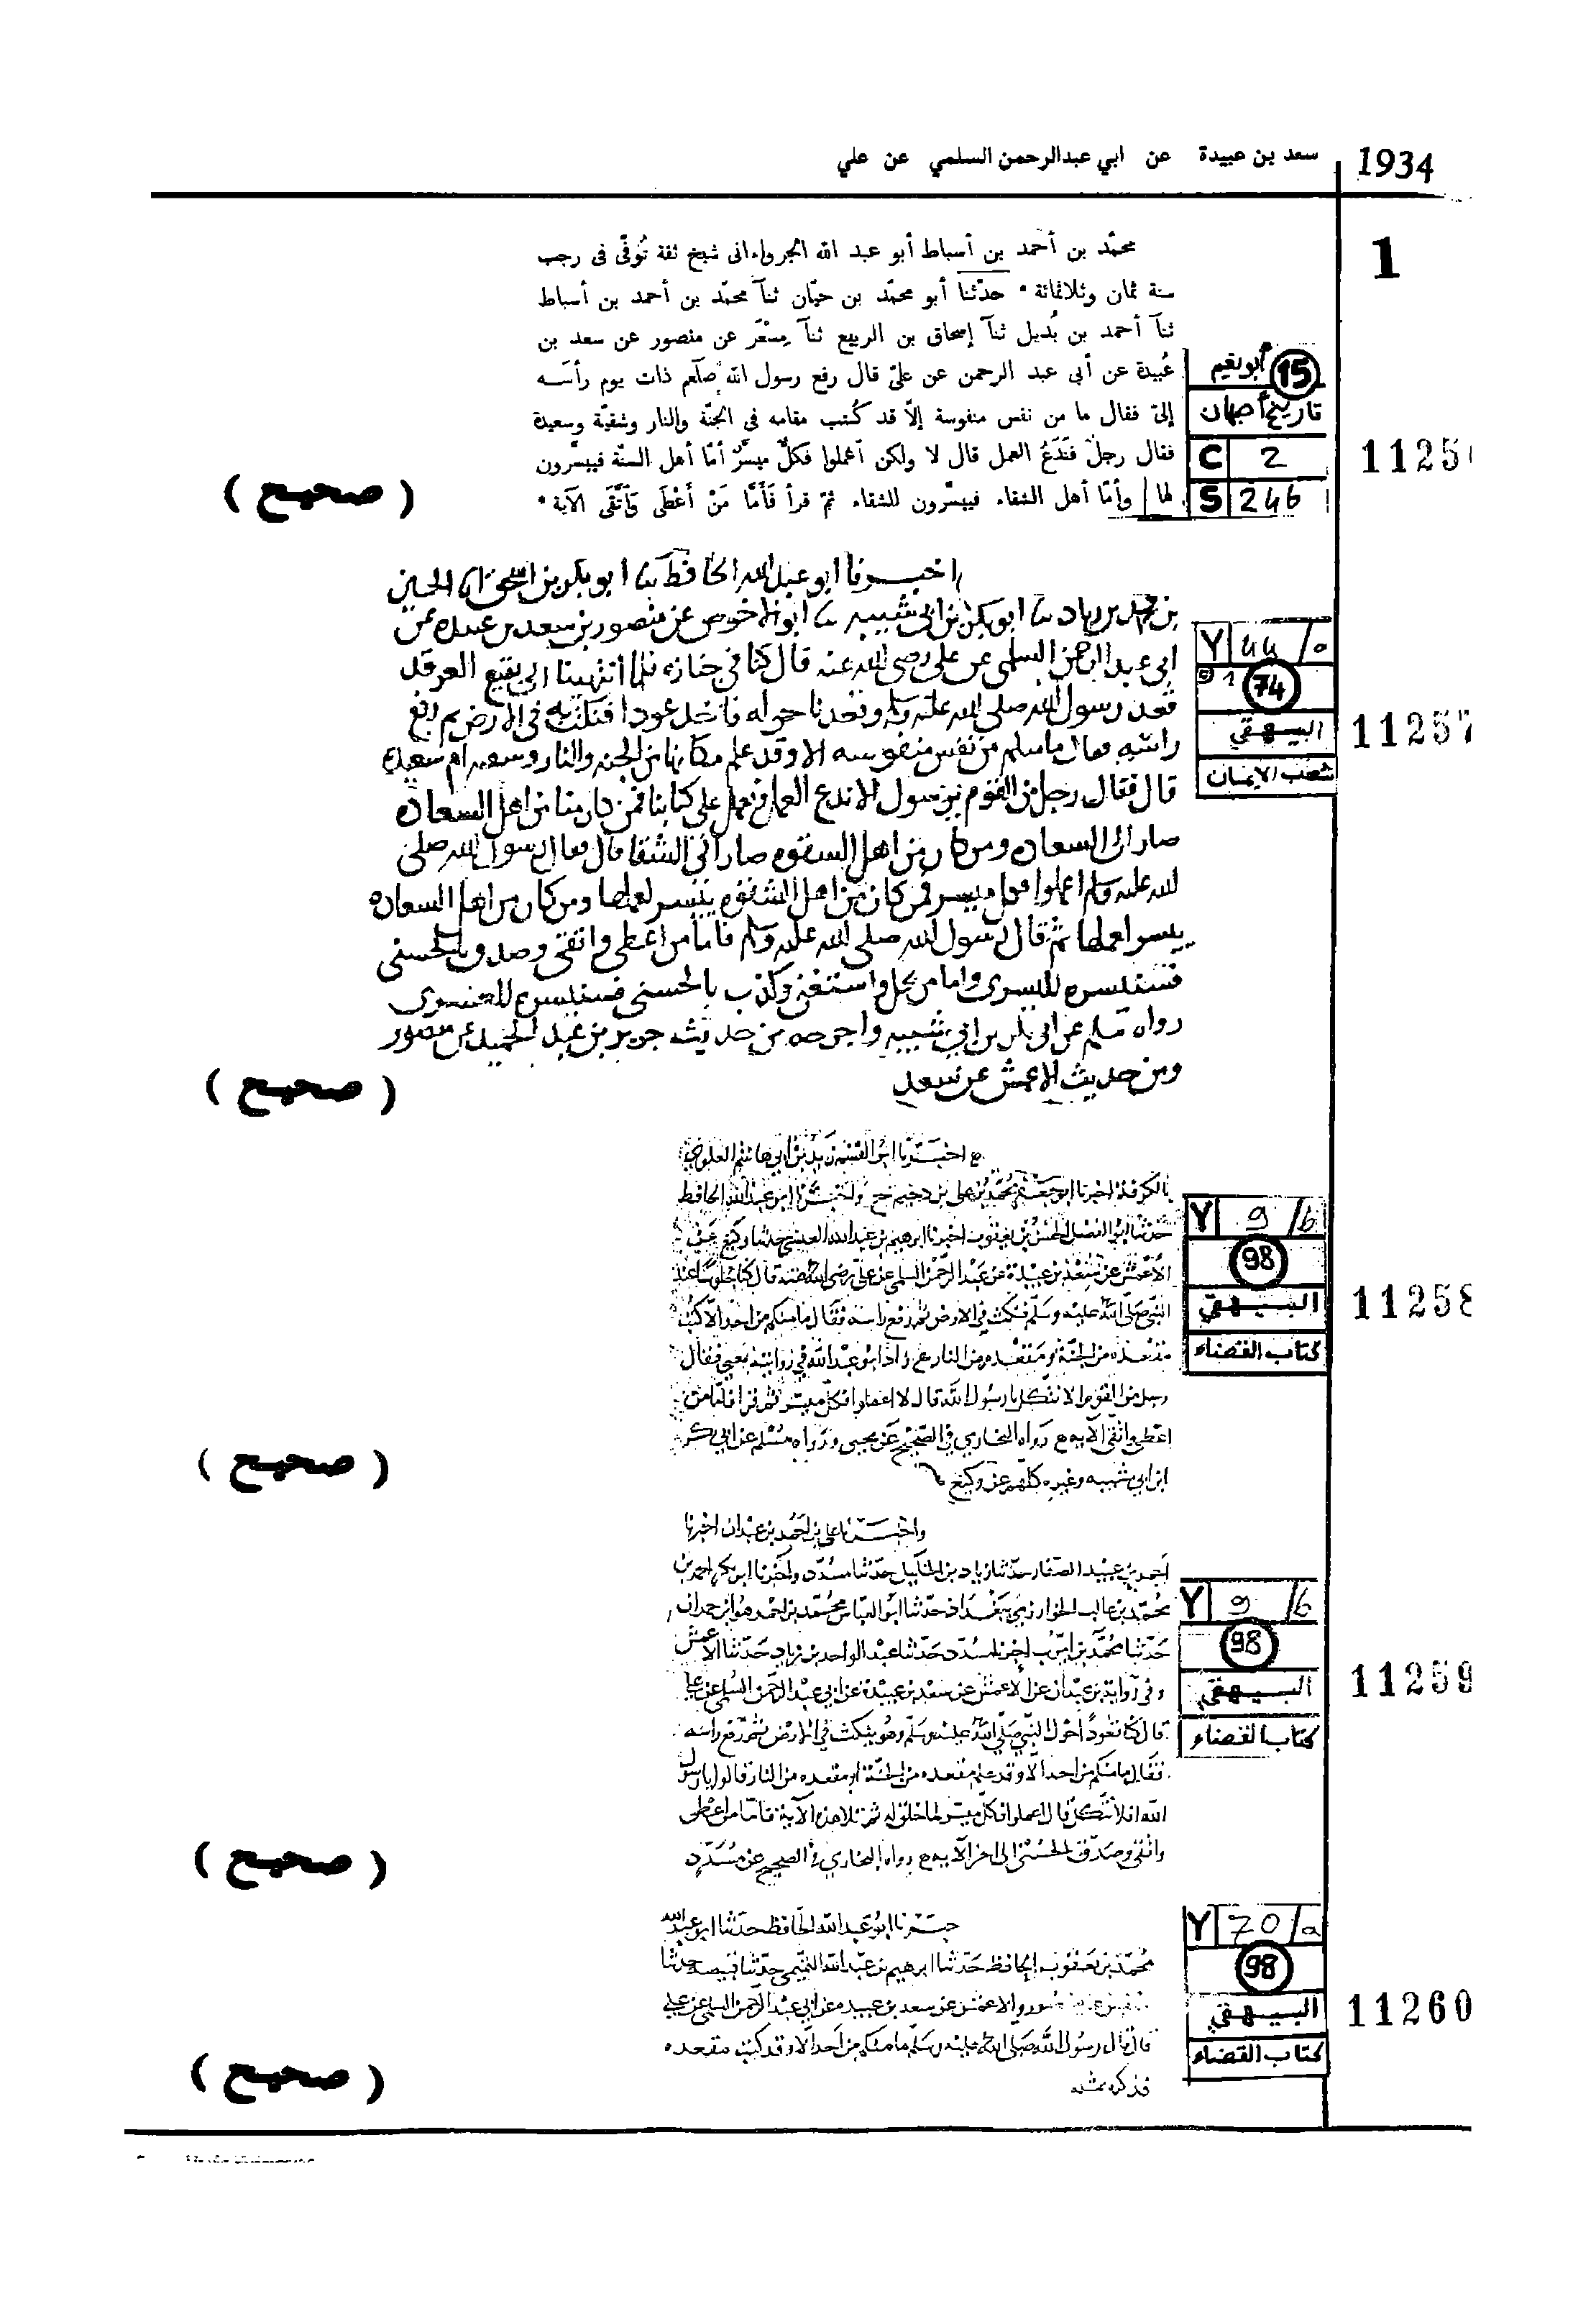 1934 سعد بن عبيدة عن ابي عبدالرحمن السلمي عن علي
1
محمّد بن أحمد بن أسباط أبو عبد الله الجرواءانى شيخ ثقة تُوفّى فى رجب
سنة ثمان وثلاثمائة * حدّثنا أبو محمّد بن حيّان ثنآ محمّد بن أحمد بن أسباط
ثنآ أحمد بن بُديل ثنآ إسحاق بن الربيع ثنآ مِسْعَر عن منصور عن سعد بن
عُبيدة عن أبى عبد الرحمن عن علىّ قال رفع رسول الله صلّعم ذات يوم رأسَـه
إلىّ فقال ما من نفس منفوسة إلاّ قد كُتب مقامه فى الجنّة والنار وشقيّة وسعيدة
فقال رجلٌ فنَدَعُ العمل قال لا ولكن آعملوا فكلٌّ ميسَّرٌ أمّا أهل السنّة فييسَّرون
لها وأمّا أهل الشقاء فييسَّرون للشقاء ثمّ قرأ فَأَمَّا مَنْ أَعْطَى وَٱتَّقَى الآية *
15 أبو نعيم
تاريخ أصبهان
C 2
S 246
1125
( صحيح )
اخبرنا ابو عبد الله الحافظ ابو بكر بن اسحق الحسين
بن محمد بن زياد ابو بكر بن ابي شيبه ابو الاحوص عن منصور بن سعد بن عبيده عن
ابي عبد الرحمن السلمي عن علي رضي الله عنه قال كنا في جنازه فلما انتهينا الى بقيع الغرقد
قعد رسول الله صلى الله عليه وسلم وقعدنا حوله فاخذ عودا فنكت به في الارض ثم رفع
راسه فقال ما منكم من نفس منفوسه الا وقد علم مكانها من الجنه والنار وشقيه ام سعيده
قال فقال رجل من القوم يرسول الا ندع العمل ونعمل على كتابنا فمن كان منا من اهل السعاده
صار الى السعاده ومن كان من اهل الشقوه صار الى الشقا قال فقال رسول الله صلى
الله عليه وسلم اعملوا فكل ميسر فمن كان من اهل الشقوه ييسر لعملها ومن كان من اهل السعاده
ييسر لعملها ثم قال رسول الله صلى الله عليه وسلم فاما من اعطى واتقى وصدق بالحسنى
فسنيسره لليسرى واما من بخل واستغنى وكذب بالحسنى فسنيسره للعسرى
رواه مسلم عن ابي بكر بن ابي شيبه واخرجه من حديث جرير بن عبد الحميد عن منصور
ومن حديث الاعمش عن سعد
Y 44 /a
74
البيهقي
شعب الإيمان
11257
( صحيح )
اخبرنا ابو القسم زيد بن ابي هاشم العلوي
بالكوفة اخبرنا ابو جعفر محمد بن علي بن دحيم ح واخبرنا ابو عبد الله الحافظ
حدثنا ابو الفضل الحسن بن يعقوب اخبرنا ابرهيم بن عبد الله العبسي حدثنا وكيع عن
الاعمش عن سعد بن عبيدة عن عبد الرحمن السلمي عن علي رضي الله عنه قال كنا جلوسا عند
النبي صلى الله عليه وسلم فنكت في الارض ثم رفع راسه فقال ما منكم من احد الا كتب
مقعده من الجنة ومقعده من النار زاد ابو عبد الله في روايته فقال
رجل من القوم الا نتكل يا رسول الله قال لا اعملوا فكل ميسر ثم قرا فاما من
اعطى واتقى الآيه رواه البخاري في الصحيح عن يحيى ورواه مسلم عن ابي بكر
ابن ابي شيبه وغيره كلهم عن وكيع
Y 9 /b
98
البيهقي
كتاب القضاء
11258
( صحيح )
واخبرنا علي بن احمد بن عبدان اخبرنا
احمد بن عبيد الصفار حدثنا زياد بن الخليل حدثنا مسدد واخبرنا ابو بكر احمد بن
محمد بن غالب الخوارزمي ببغداد حدثنا ابو العباس محمد بن احمد هو ابن حمدان
حدثنا محمد بن ايوب اخبرنا مسدد حدثنا عبد الواحد بن زياد حدثنا الاعمش
وفي رواية بن عبدان عن الاعمش عن سعد بن عبيدة عن ابي عبد الرحمن السلمي عن علي
قال كنا قعودا حول النبي صلى الله عليه وسلم وهو ينكت في الارض ثم رفع راسه
فقال ما منكم من احد الا وقد علم مقعده من الجنة او مقعده من النار قالوا يا رسول
الله افلا نتكل قال اعملوا فكل ميسر لما خلق له ثم تلا هذه الآية فاما من اعطى
واتقى وصدق بالحسنى الى اخر الآيه رواه البخاري في الصحيح عن مسدد
Y 9 /b
98
البيهقي
كتاب القضاء
11259
( صحيح )
اخبرنا ابو عبد الله الحافظ حدثنا ابو عبد الله
محمد بن يعقوب الحافظ حدثنا ابرهيم بن عبد الله التميمي حدثنا قبيصه حدثنا
منصور والاعمش عن سعد بن عبيده عن ابي عبد الرحمن السلمي عن علي
قال قال رسول الله صلى الله عليه وسلم ما منكم من احد الا وقد كتب مقعده
فذكره بمثله
Y 70 /a
98
البيهقي
كتاب القضاء
11260
( صحيح )